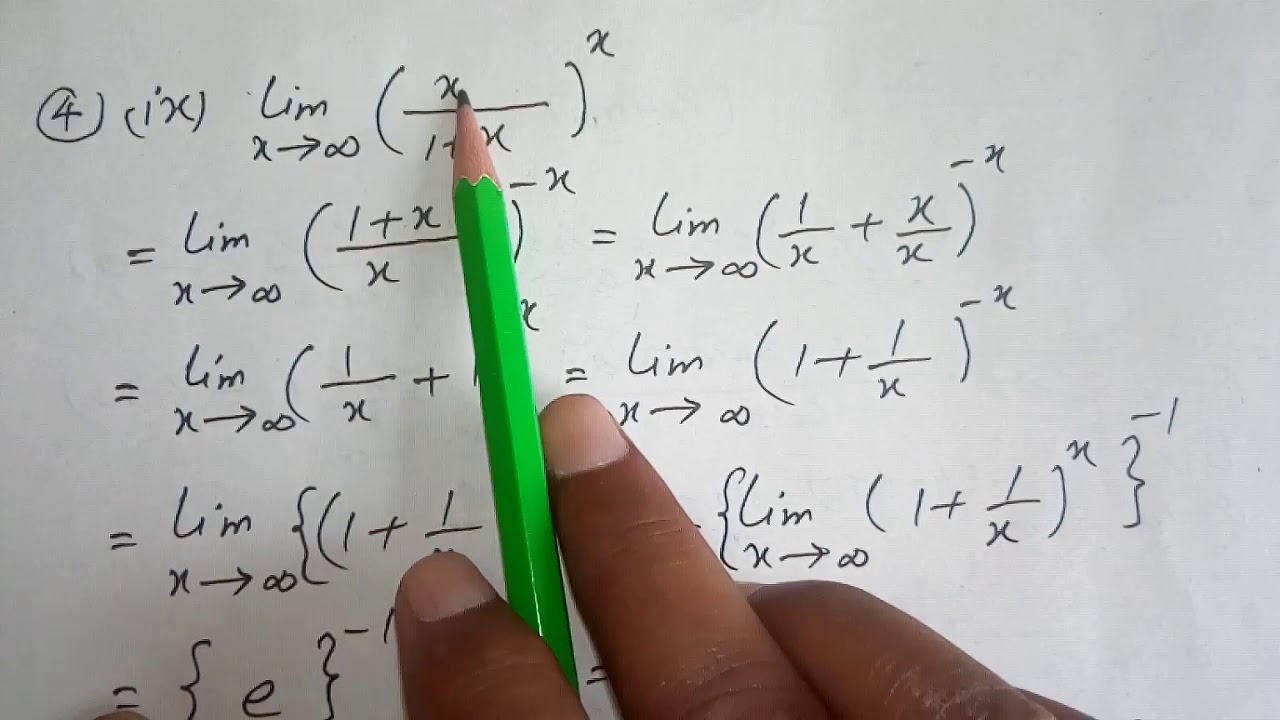 ④ (ix) lim x→∞ (x/(1+x))^x
= lim x→∞ ((1+x)/x)^-x = lim x→∞ (1/x + x/x)^-x
= lim x→∞ (1/x + = lim x→∞ (1 + 1/x)^-x
= lim x→∞ {(1 + 1/ {lim x→∞ (1 + 1/x)^x}^-1
= {e}^-1 =